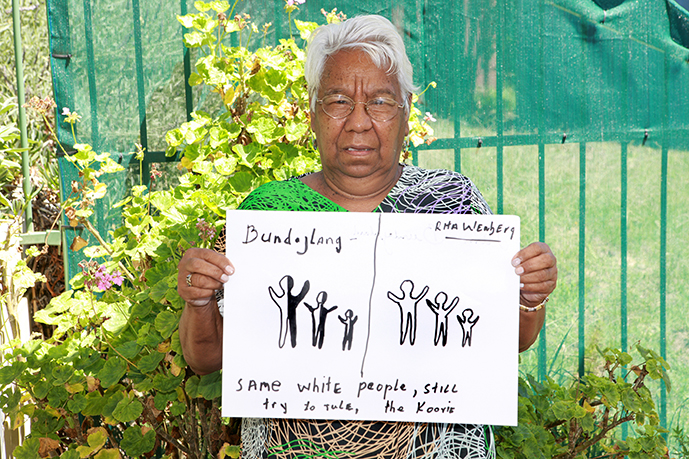 Bundojlang
RitA Wenberg
SAME white people, still
try to rule, the Koorie